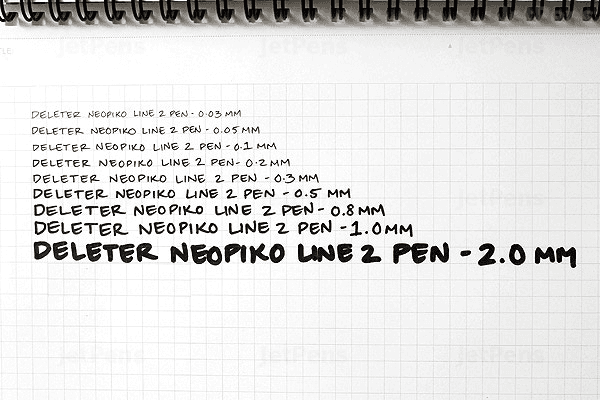 JetPens JetPens JetPens
DELETER NEOPIKO LINE 2 PEN - 0.03 MM
DELETER NEOPIKO LINE 2 PEN - 0.05 MM
DELETER NEOPIKO LINE 2 PEN - 0.1 MM
DELETER NEOPIKO LINE 2 PEN - 0.2 MM
DELETER NEOPIKO LINE 2 PEN - 0.3 MM
DELETER NEOPIKO LINE 2 PEN - 0.5 MM
DELETER NEOPIKO LINE 2 PEN - 0.8 MM
DELETER NEOPIKO LINE 2 PEN - 1.0 MM
DELETER NEOPIKO LINE 2 PEN - 2.0 MM
JetPens JetPens JetPens